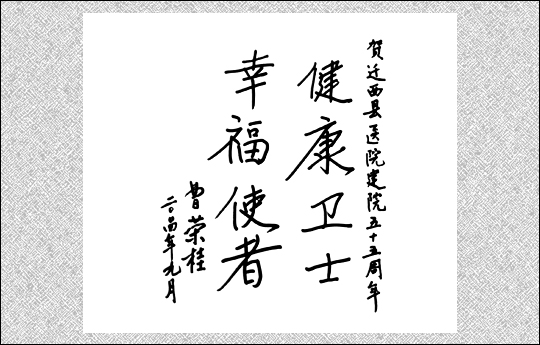 贺迁西县医院建院五十五周年
健康卫士
幸福使者
曹荣桂
二〇〇四年九月